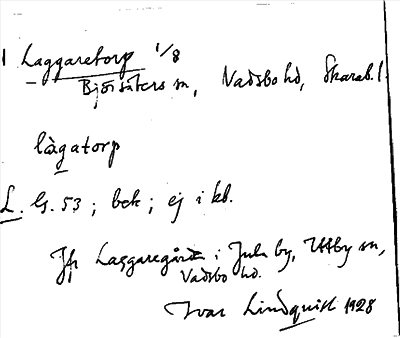 1 Laggaretorp 1/8
Björsäters sn, Vadsbo hd, Skarab. l.
làgatorp
L. G. 53 ; bek ; ej i kb.
Jfr Laggaregården i Jula by, Utby sn,
Vadsbo hd.
Ivar Lindquist 1928